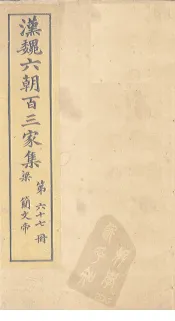 漢魏六朝百三家集
梁簡文帝
第六十七冊